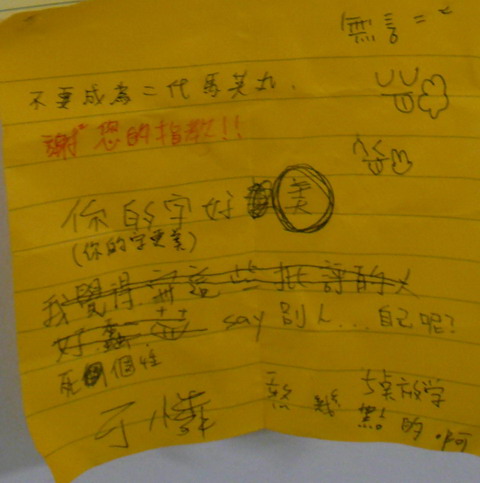 無言=
不要成為二代馬英九.
謝"您的指教!!
你的字好美
(你的字更美)
我覺得寫這些批評的人
好蠢 say 別人...自己呢?
死個性
可憐
幾點放学的啊